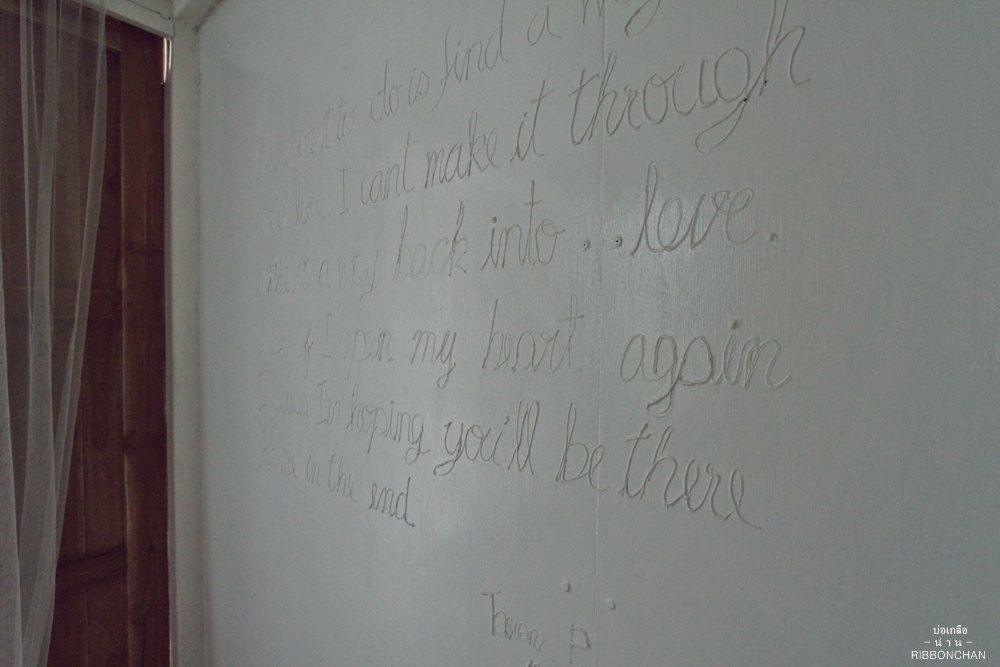 do is find a way
I cant make it through
way back into ...love.
if I open my heart again
I'm hoping you'll be there
in the end
บ่อเกลือ
– น่าน –
RIBBONCHAN